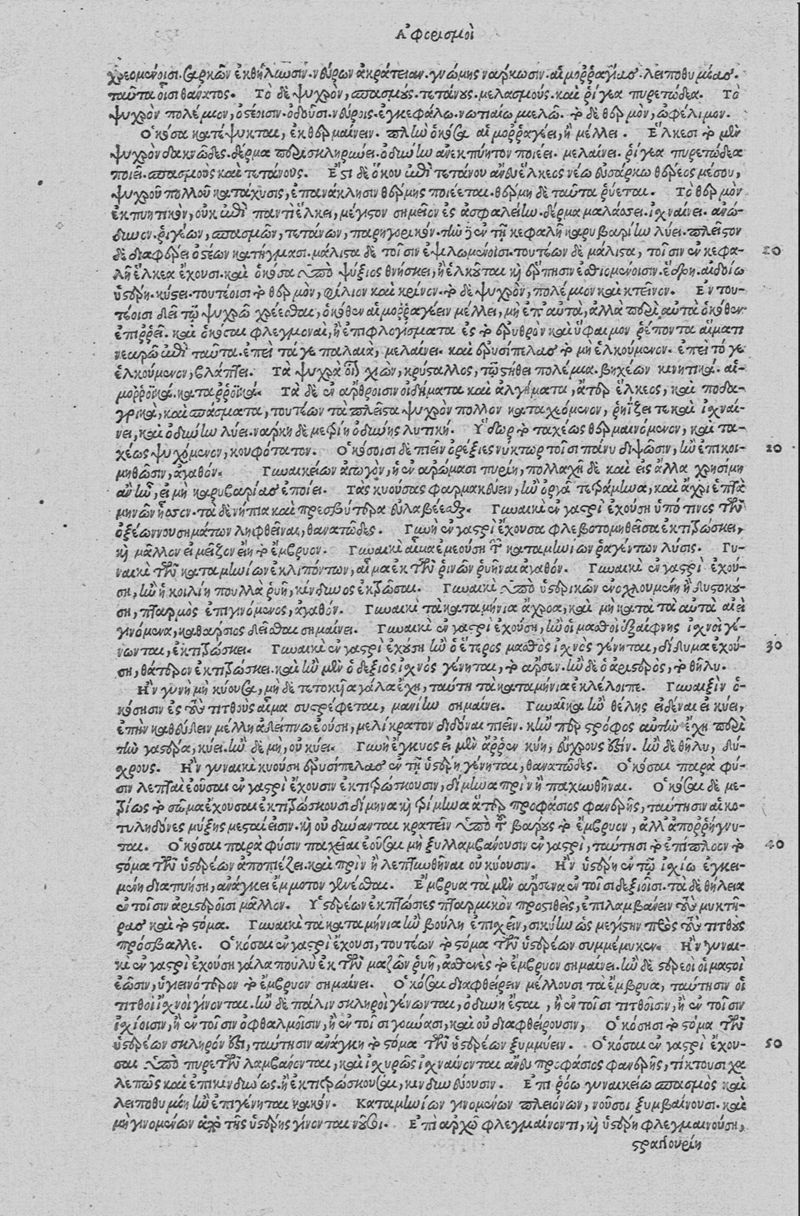 Ἀφορισμοὶ
χρεομένοισι. σαρκῶν ἐκθήλωσιν. νεύρων ἀκράτειαν. γνώμης νάρκωσιν. αἱμοῤῥαγίας. λειποθυμίας.
ταῦτα οἷσι θάνατος. Τὸ δὲ ψυχρὸν, σπασμοὺς. τετάνους. μελασμοὺς. καὶ ῥίγεα πυρετώδεα. Τὸ
ψυχρὸν πολέμιον, ὀστέοισιν. ὀδοῦσι. νεύροις. ἐγκεφάλω. νωτιαίω μυελῶ. τὸ δὲ θερμὸν, ὠφέλιμον.
Ὁκόσα κατέψυκται, ἐκθερμαίνειν. πλὴν ὁκόσα αἱμοῤῥαγέει, ἢ μέλλει. Ἕλκεσι τὸ μὲν
ψυχρὸν δακνῶδες. δέρμα περισκληρύνει. ὀδύνην ἀνεκπύητον ποιέει. μελαίνει. ῥίγεα πυρετώδεα
ποιέει. σπασμοὺς καὶ τετάνους. Ἔστι δὲ ὅκου ἐπὶ τετάνου ἄνευ ἕλκεος νέω εὐσάρκω θέρεος μέσου,
ψυχροῦ πολλοῦ κατάχυσις, ἐπανάκλησιν θέρμης ποιέεται. θέρμη δὲ ταῦτα ῥύεται. Τὸ θερμὸν
ἐκπυητικὸν, οὐκ ἐπὶ παντὶ ἕλκει, μέγιστον σημεῖον ἐς ἀσφαλείην. δέρμα μαλάσσει. ἰσχναίνει. ἀνώ-
δυνον. ῥιγέων, σπασμῶν, τετάνων, παρηγορικόν. τὴν δὲ ἐν τῇ κεφαλῇ καρυβαρίην λύει. πλεῖστον
δὲ διαφέρει ὀστέων κατήγμασι. μάλιστα δὲ τοῖσιν ἐψιλωμένοισι. τουτέων δὲ μάλιστα, τοῖσιν ἐν κεφα- 20
λῇ ἕλκεα ἔχουσι. καὶ ὁκόσα ὑπὸ ψύξιος θνήσκει, ἢ ἑλκοῦται. καὶ ἕρπησιν ἐσθιομένοισιν. ἕδρη. αἰδοίω
ὑστέρη. κύστει. τουτέοισι τὸ θερμὸν, φίλιον καὶ κρίνον. τὸ δὲ ψυχρὸν, πολέμιον καὶ κτεῖνον. Ἐν του-
τέοισι δεῖ τῷ ψυχρῶ χρέεσθαι, ὁκόθεν αἱμοῤῥαγέειν μέλλει, μὴ ἐπ' αὐτὰ, ἀλλὰ περὶ αὐτὰ ὁκόθεν
ἐπιῤῥεῖ. καὶ ὁκόσαι φλεγμοναὶ, ἢ ἐπιφλογίσματα ἐς τὸ ἐρυθρὸν καὶ ὕφαιμον ῥέπονται αἵματι
νεαρῶ ἐπὶ ταῦτα. ἐπεὶ τά γε παλαιὰ, μελαίνει. καὶ ἐρυσίπελας τὸ μὴ ἑλκούμενον. ἐπεὶ τό γε
ἑλκούμενον, βλάπτει. Τὰ ψυχρὰ οἷον χιὼν, κρύσταλλος, τῷ στήθει πολέμια. βηχέων κινητικά. αἱ-
μοῤῥοϊκά. καταῤῥοϊκά. Τὰ δὲ ἐν ἄρθροισιν οἰδήματα καὶ ἀλγήματα, ἄτερ ἕλκεος, καὶ ποδα-
γρικὰ, καὶ σπάσματα, τουτέων τὰ πλεῖστα ψυχρὸν πολλὸν καταχεόμενον, ῥηίζει τε καὶ ἰσχναί-
νει, καὶ ὀδύνην λύει. νάρκη δὲ μετρίη ὀδύνης λυτική. Ὕδωρ τὸ ταχέως θερμαινόμενον, καὶ τα-
χέως ψυχόμενον, κουφότατον. Ὁκόσοισι δὲ πιεῖν ὀρέξιες νύκτωρ τοῖσι πάνυ διψῶσιν, ἢν ἐπικοι- 20
μηθῶσιν, ἀγαθόν. Γυναικείων ἀγωγὸν, ἡ ἐν ἀρώμασι πυρίη, πολλαχῆ δὲ καὶ εἰς ἄλλα χρησίμη
ἂν ἦν, εἰ μὴ καρυβαρίας ἐποίει. Τὰς κυούσας φαρμακεύειν, ἢν ὀργᾷ τετράμηνα, καὶ ἄχρι ἑπτὰ
μηνῶν ἧσσον. τὰ δὲ νήπια καὶ πρεσβύτερα εὐλαβέεσθαι. Γυναικὶ ἐν γαστρὶ ἐχούσῃ ὑπό τινος τῶν
ὀξέων νουσημάτων ληφθῆναι, θανατῶδες. Γυνὴ ἐν γαστρὶ ἔχουσα φλεβοτομηθεῖσα ἐκτιτρώσκει,
καὶ μᾶλλον εἰ μεῖζον εἴη τὸ ἔμβρυον. Γυναικὶ αἷμα ἐμεούσῃ τῶν καταμηνίων ῥαγέντων λύσις. Γυ-
ναικὶ τῶν καταμηνίων ἐκλιπόντων, αἷμα ἐκ τῶν ῥινῶν ῥυῆναι ἀγαθόν. Γυναικὶ ἐν γαστρὶ ἐχού-
ση, ἢν ἡ κοιλίη πουλλὰ ῥυῇ, κίνδυνος ἐκτρῶσαι. Γυναικὶ ὑπὸ ὑστερικῶν ἐνοχλουμένῃ ἢ δυστοκού-
ση, πταρμὸς ἐπιγινόμενος, ἀγαθόν. Γυναικὶ τὰ καταμήνια ἄχροα, καὶ μὴ κατὰ τὰ αὐτὰ αἰεὶ
γινόμενα, καθάρσιος δεῖσθαι σημαίνει. Γυναικὶ ἐν γαστρὶ ἐχούσῃ, ἢν οἱ μασθοὶ ἐξαίφνης ἰσχνοὶ γέ-
νωνται, ἐκτιτρώσκει. Γυναικὶ ἐν γαστρὶ ἐχούσῃ ἢν ὁ ἕτερος μασθὸς ἰσχνὸς γένηται, δίδυμα ἐχού- 30
ση, θάτερον ἐκτιτρώσκει. καὶ ἢν μὲν ὁ δεξιὸς ἰσχνὸς γένηται, τὸ ἄρσεν. ἢν δὲ ὁ ἀριστερὸς, τὸ θῆλυ.
Ἢν γυνὴ μὴ κύουσα, μηδὲ τετοκυῖα γάλα ἔχῃ, ταύτῃ τὰ καταμήνια ἐκλέλοιπε. Γυναιξὶν ὁ-
κόσῃσιν ἐς τοὺς τιτθοὺς αἷμα συστρέφεται, μανίην σημαίνει. Γυναῖκα ἢν θέλῃς εἰδέναι εἰ κύει,
ἐπὴν καθεύδειν μέλλῃ ἀδείπνω ἐούσῃ, μελίκρατον διδόναι πιεῖν. κἢν περ στρόφος αὐτὴν ἔχῃ περὶ
τὴν γαστέρα, κύει. ἢν δὲ μὴ, οὐ κύει. Γυνὴ ἔγκυος εἰ μὲν ἄῤῥεν κύῃ, εὔχρους ἐστίν. ἢν δὲ θῆλυ, δύ-
σχρους. Ἢν γυναικὶ κυούσῃ ἐρυσίπελας ἐν τῇ ὑστέρῃ γένηται, θανατῶδες. Ὁκόσαι παρὰ φύ-
σιν λεπταὶ ἐοῦσαι ἐν γαστρὶ ἔχουσιν ἐκτιτρώσκουσιν, δίμηνα πρὶν ἢ παχυνθῆναι. Ὁκόσαι δὲ με-
τρίως τὸ σῶμα ἔχουσαι ἐκτιτρώσκουσι δίμηνα καὶ τρίμηνα ἄτερ προφάσιος φανερῆς, ταύτῃσιν αἱ κο-
τυληδόνες μύξης μεσταί εἰσιν. καὶ οὐ δύνανται κρατεῖν ὑπὸ τοῦ βάρους τὸ ἔμβρυον, ἀλλ' ἀποῤῥήγνυ-
ται. Ὁκόσαι παρὰ φύσιν παχεῖαι ἐοῦσαι μὴ ξυλλαμβάνουσιν ἐν γαστρὶ, ταύτῃσι τὸ ἐπίπλοον τὸ 40
στόμα τῶν ὑστερέων ἀποπιέζει. καὶ πρὶν ἢ λεπτυνθῆναι οὐ κύουσιν. Ἢν ὑστέρη ἐν τῷ ἰσχίω ἐγκει-
μένη διαπυήσῃ, ἀνάγκη ἔμμοτον γενέσθαι. Ἔμβρυα τὰ μὲν ἄρσενα ἐν τοῖσι δεξιοῖσι. τὰ δὲ θήλεια
ἐν τοῖσιν ἀριστεροῖσι μᾶλλον. Ὑστερέων ἐκπτώσιες πταρμικὸν προστιθεὶς, ἐπιλαμβάνειν τοὺς μυκτῆ-
ρας καὶ τὸ στόμα. Γυναικὶ τὰ καταμήνια ἢν βούλῃ ἐπισχεῖν, σικύην ὡς μεγίστην πρὸς τοὺς τιτθοὺς
πρόσβαλλε. Ὁκόσαι ἐν γαστρὶ ἔχουσι, τουτέων τὸ στόμα τῶν ὑστερέων συμμέμυκεν. Ἢν γυναι-
κὶ ἐν γαστρὶ ἐχούσῃ γάλα πουλὺ ἐκ τῶν μαζῶν ῥυῇ, ἀσθενὲς τὸ ἔμβρυον σημαίνει. ἢν δὲ στερεοὶ οἱ μαστοὶ
ἔωσιν, ὑγιεινότερον τὸ ἔμβρυον σημαίνει. Ὁκόσαι διαφθείρειν μέλλουσι τὰ ἔμβρυα, ταύτῃσιν οἱ
τιτθοὶ ἰσχνοὶ γίνονται. ἢν δὲ πάλιν σκληροὶ γένωνται, ὀδύνη ἔσται, ἢ ἐν τοῖσι τιτθοῖσιν, ἢ ἐν τοῖσιν
ἰσχίοισιν, ἢ ἐν τοῖσιν ὀφθαλμοῖσιν, ἢ ἐν τοῖσι γούνασι, καὶ οὐ διαφθείρουσιν, Ὁκόσῃσι τὸ στόμα τῶν
ὑστερέων σκληρὸν ἐστι, ταύτῃσιν ἀνάγκη τὸ στόμα τῶν ὑστερέων ξυμμύειν. Ὁκόσαι ἐν γαστρὶ ἔχου- 50
σαι ὑπὸ πυρετῶν λαμβάνονται, καὶ ἰσχυρῶς ἰσχναίνονται ἄνευ προφάσιος φανερῆς, τίκτουσι χα
λεπῶς καὶ ἐπικινδύνως. ἢ ἐκτιτρώσκουσαι, κινδυνεύουσιν. Ἐπὶ ῥόω γυναικείω σπασμὸς καὶ
λειποθυμίη ἢν ἐπιγένηται κακόν. Καταμηνίων γινομένων πλειόνων, νοῦσοι ξυμβαίνουσι. καὶ
μὴ γινομένων ἀπὸ τῆς ὑστέρης γίνονται νοῦσοι. Ἐπὶ ἀρχῶ φλεγμαίνοντι, καὶ ὑστέρῃ φλεγμαινούσῃ,
στραγγουρίη